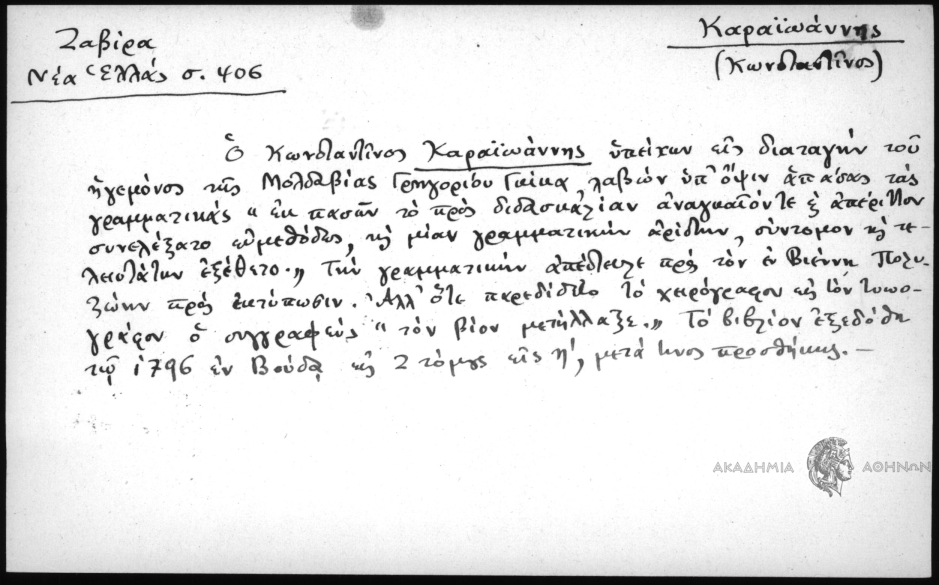 Ζαβίρα
Νέα Ἑλλάς σ. 406
Καραϊωάννης
(Κωνσταντῖνος)
Ὁ Κωνσταντῖνος Καραϊωάννης ὑπείκων εἰς διαταγὴν τοῦ
ἡγεμόνος τῆς Μολδαβίας Γρηγορίου Γκίκα, λαβὼν ὑπ' ὄψιν ἁπάσας τὰς
γραμματικάς "ἐκ πασῶν τὸ πρὸς διδασκαλίαν ἀναγκαῖόν τε ἐ ἀπέριττον
συνελέξατο εὐμεθόδως, κὴ μίαν γραμματικὴν ἀρίστην, σύντομον κὴ τε-
λειοτάτην ἐξέθετο." Τὴν γραμματικὴν ἀπέστειλε πρὸς τὸν ἐν Βιέννῃ Πολυ-
ζώην πρὸς ἐκτύπωσιν. Ἀλλ' ὅτε παρεδίδετο τὸ χειρόγραφον εἰς τὸν τυπο-
γράφον ὁ συγγραφεὺς "τὸν βίον μετήλλαξε." Τὸ βιβλίον ἐξεδόθη
τῷ 1796 ἐν Βούδᾳ εἰς 2 τόμους εἰς η', μετά τινος προσθήκης. –
ΑΚΑΔΗΜΙΑ ΑΘΗΝΩΝ